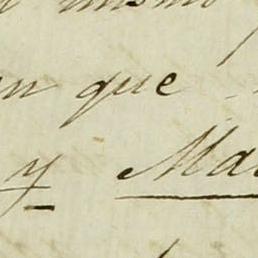 mismo
en que
y Ma